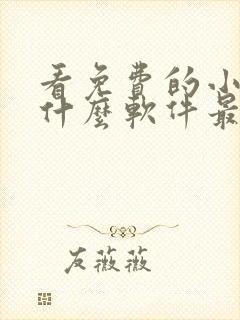 看免費的小
什麼軟件最
友薇薇